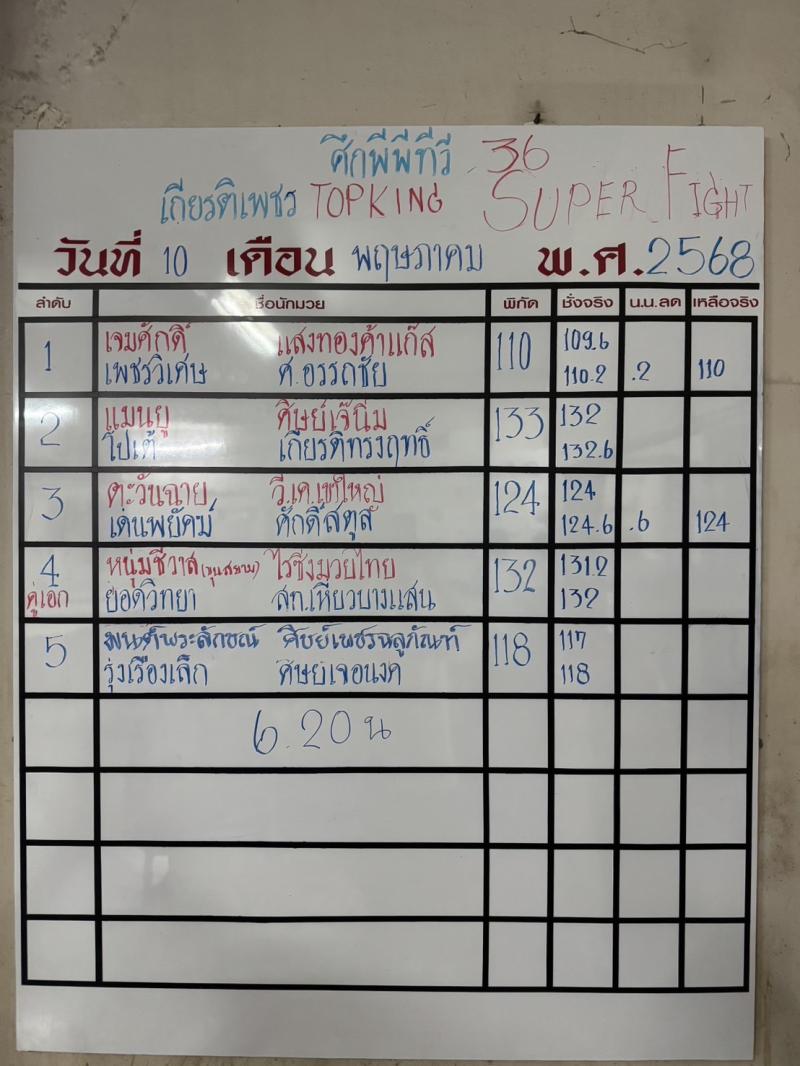 ศึกพีพีทีวี 36
เกียรติเพชร TOPKING SUPER FIGHT
วันที่ 10 เดือน พฤษภาคม พ.ศ.2568
ลำดับ ชื่อนักมวย พิกัด ชั่งจริง น.น.ลด เหลือจริง
1 เจมศักดิ์ แสงทองค้าแก๊ส 110 109.6
เพชรวิเศษ ศ.อรรถชัย 110.2 .2 110
2 แมนยู ศิษย์เจ๊นิ่ม 133 132
โปเต้ เกียรติทรงฤทธิ์ 132.6
3 ตะวันฉาย วี.เค.เขาใหญ่ 124 124
เด่นพยัคฆ์ ศักดิ์สตูล 124.6 .6 124
4 หนุ่มชีวาส (ขุนสยาม) ไรซิ่งมวยไทย 132 131.2
คู่เอก ยอดวิทยา สท.เหี่ยวบางแสน 132
5 มนต์พระลักษณ์ ศิษย์เพชรฉลูภัณฑ์ 118 117
รุ่งเรืองเล็ก ศิษย์เจอนงค์ 118
6.20 น